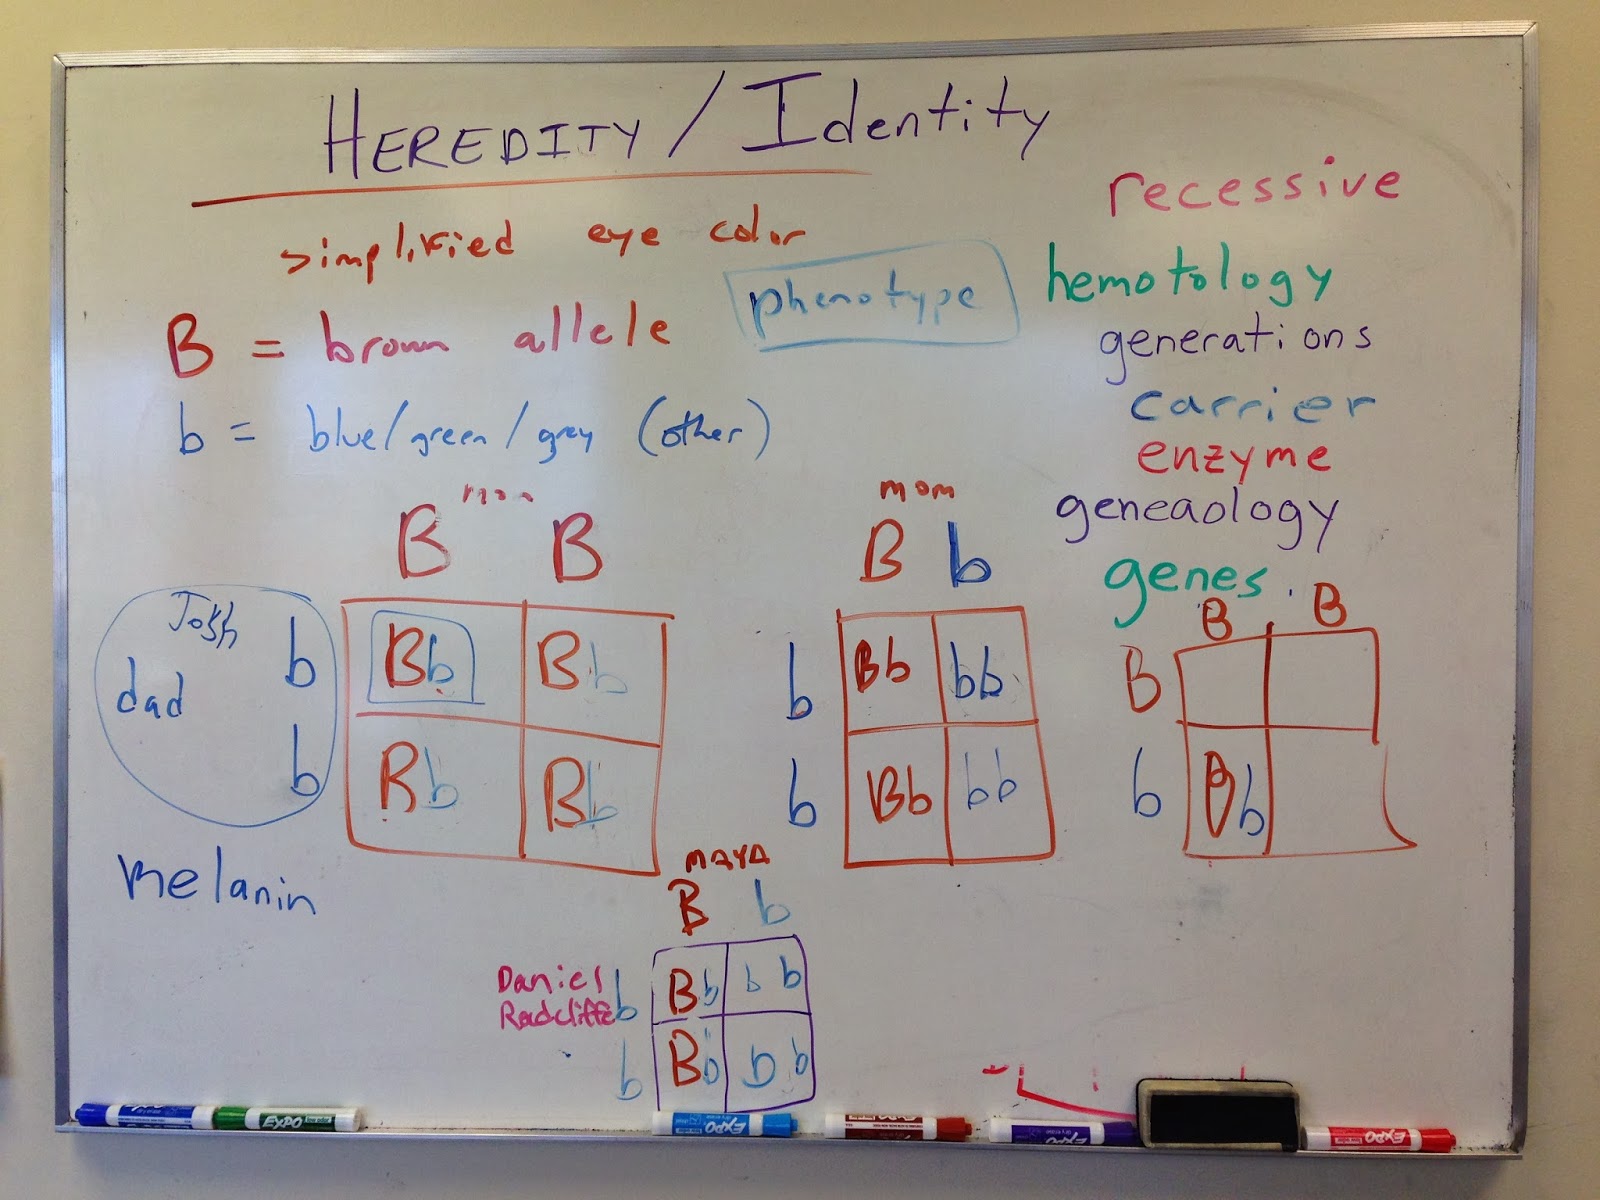 HEREDITY / Identity
simplified eye color
B = brown allele
b = blue/green/grey (other)
phenotype
recessive
hemotology
generations
carrier
enzyme
geneaology
genes
mom
B B
Josh
dad
b
b
Bb Bb
Bb Bb
mom
B b
b
b
Bb bb
Bb bb
B B
B
b
Bb
melanin
MAYA
B b
Daniel
Radcliffe
b
b
Bb bb
Bb bb
EXPO
EXPO
EXPO
EXPO